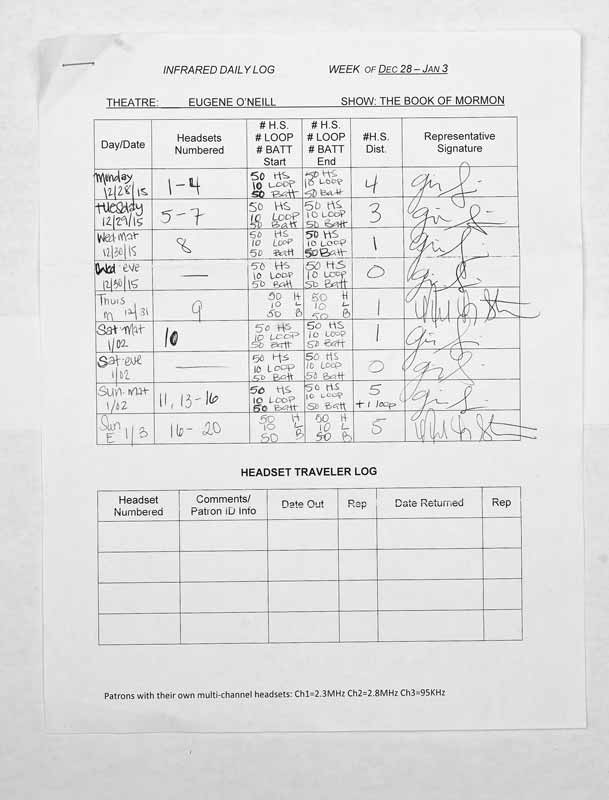 INFRARED DAILY LOG WEEK OF DEC 28 – JAN 3
THEATRE: EUGENE O'NEILL SHOW: THE BOOK OF MORMON
Day/Date Headsets Numbered # H.S. # LOOP # BATT Start # H.S. # LOOP # BATT End #H.S. Dist. Representative Signature
Monday 12/28/15 1-4 50 HS 10 LOOP 50 Batt 50 HS 10 LOOP 50 Batt 4
Tuesday 12/29/15 5-7 50 HS 10 LOOP 50 Batt 50 HS 10 LOOP 50 Batt 3
Wed mat 12/30/15 8 50 HS 10 LOOP 50 Batt 50 HS 10 LOOP 50 Batt 1
Wed eve 12/30/15 — 50 HS 10 LOOP 50 Batt 50 HS 10 LOOP 50 Batt 0
Thurs m 12/31 9 50 H 10 L 50 B 50 H 10 L 50 B 1
Sat mat 1/02 10 50 HS 10 LOOP 50 Batt 50 HS 10 LOOP 50 Batt 1
Sat eve 1/02 — 50 HS 10 LOOP 50 Batt 50 HS 10 LOOP 50 Batt 0
Sun mat 1/02 11, 13-16 50 HS 10 LOOP 50 Batt 50 HS 10 LOOP 50 Batt 5 +1 loop
Sun E 1/3 16-20 50 H 10 L 50 B 50 H 10 L 50 B 5
HEADSET TRAVELER LOG
Headset Numbered Comments/ Patron ID Info Date Out Rep Date Returned Rep
Patrons with their own multi-channel headsets: Ch1=2.3MHz Ch2=2.8MHz Ch3=95KHz